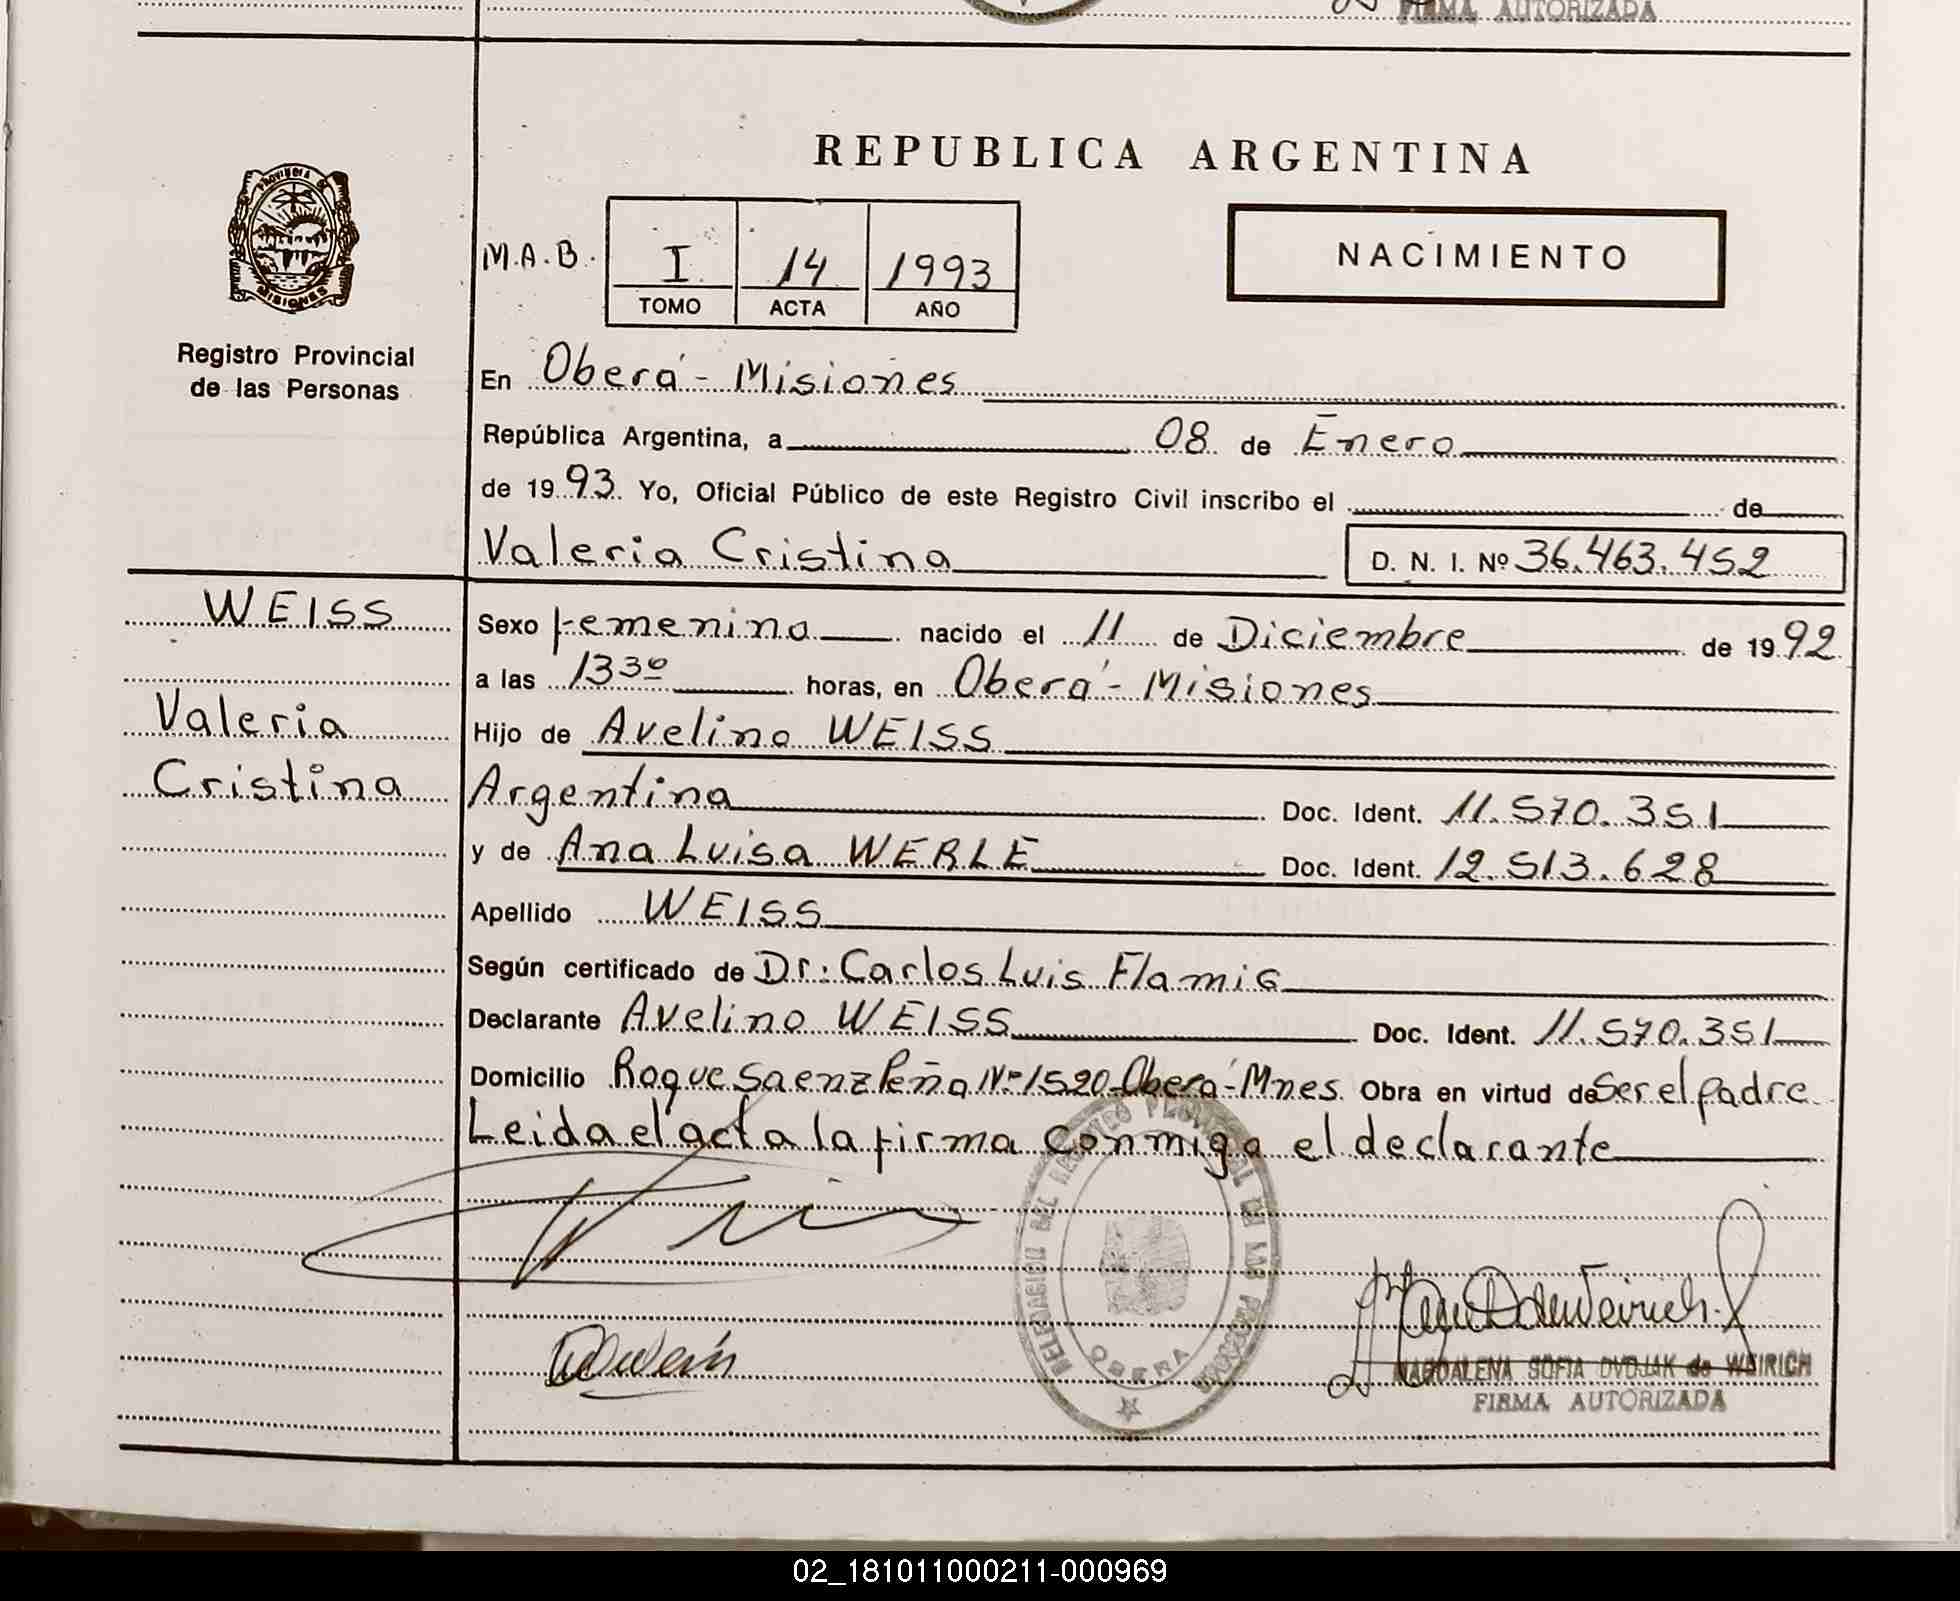 FIRMA AUTORIZADA
REPUBLICA ARGENTINA
PROVINCIA DE
MISIONES
Registro Provincial
de las Personas
M.A.B. I 14 1993
TOMO ACTA AÑO
NACIMIENTO
En Oberá - Misiones
República Argentina, a 08 de Enero
de 1993. Yo, Oficial Público de este Registro Civil inscribo el de
Valeria Cristina D. N. I. Nº 36.463.452
WEISS
Valeria
Cristina
Sexo Femenino nacido el 11 de Diciembre de 1992
a las 13³⁰ horas, en Oberá - Misiones
Hijo de Avelino WEISS
Argentina Doc. Ident. 11.570.351
y de Ana Luisa WERLE Doc. Ident. 12.513.628
Apellido WEISS
Según certificado de Dr: Carlos Luis Flamig
Declarante Avelino WEISS Doc. Ident. 11.570.351
Domicilio Roque Saenz Peña Nº 1520-Oberá-Mnes. Obra en virtud de Ser el padre.
Leida el acta la firma conmigo el declarante
DELEGACION DEL REGISTRO PROVINCIAL DE LAS PERSONAS
OBERA
MAGDALENA SOFIA DVOJAK de WEIRICH
FIRMA AUTORIZADA
02_181011000211-000969